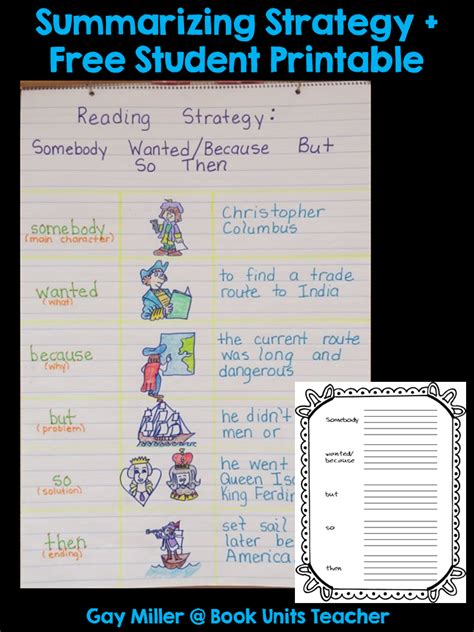 Summarizing Strategy +
Free Student Printable
Reading Strategy:
Somebody Wanted/Because But
So Then
somebody
(main character)
Christopher
Columbus
wanted
(what)
to find a trade
route to India
because
(why)
the current route
was long and
dangerous
but
(problem)
he didn't
men or
so
(solution)
he went
Queen
King Ferdin
then
(ending)
set sail
later
America
Somebody
wanted/
because
but
so
then
Gay Miller @ Book Units Teacher